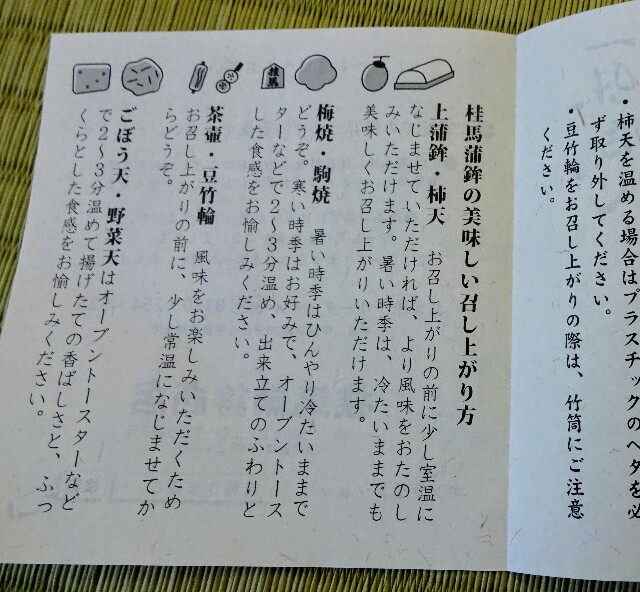 ・柿天を温める場合はプラスチックのヘタを必
ず取り外してください。
・豆竹輪をお召し上がりの際は、竹筒にご注意
ください。
桂馬蒲鉾の美味しい召し上がり方
上蒲鉾・柿天 お召し上がりの前に少し室温に
なじませていただければ、より風味をおたのし
みいただけます。暑い時季は、冷たいままでも
美味しくお召し上がりいただけます。
梅焼・駒焼 暑い時季はひんやり冷たいままで
どうぞ。寒い時季はお好みで、オーブントース
ターなどで2〜3分温め、出来立てのふわりと
した食感をお愉しみください。
茶壷・豆竹輪 風味をお楽しみいただくため
お召し上がりの前に、少し常温になじませてか
らどうぞ。
ごぼう天・野菜天はオーブントースターなど
で2〜3分温めて揚げたての香ばしさと、ふっ
くらとした食感をお愉しみください。
桂馬